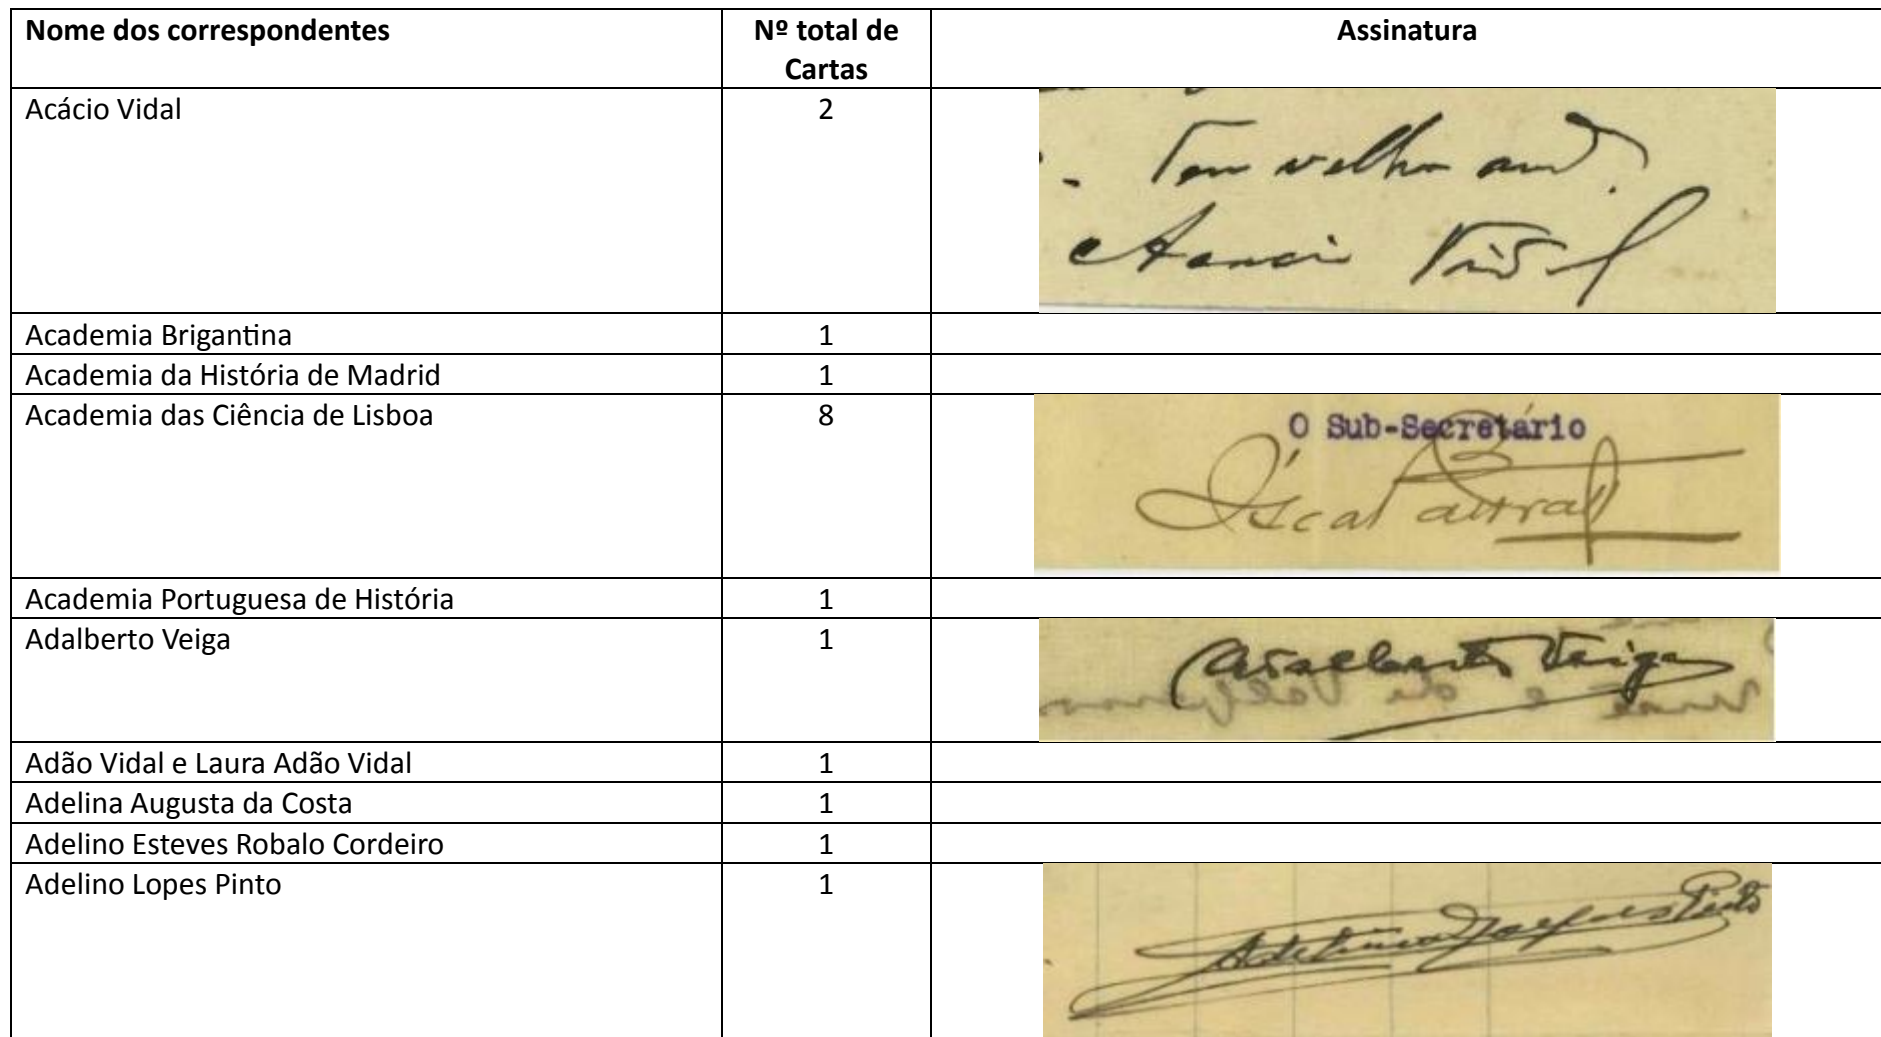 Nome dos correspondentes
Nº total de
Cartas
Assinatura
Acácio Vidal
2
velho
Acacio Vidal
Academia Brigantina
1
Academia da História de Madrid
1
Academia das Ciência de Lisboa
8
O Sub-Secretário
Óscar
Academia Portuguesa de História
1
Adalberto Veiga
1
Adalberto Veiga
Adão Vidal e Laura Adão Vidal
1
Adelina Augusta da Costa
1
Adelino Esteves Robalo Cordeiro
1
Adelino Lopes Pinto
1
Adelino Lopes Pinto